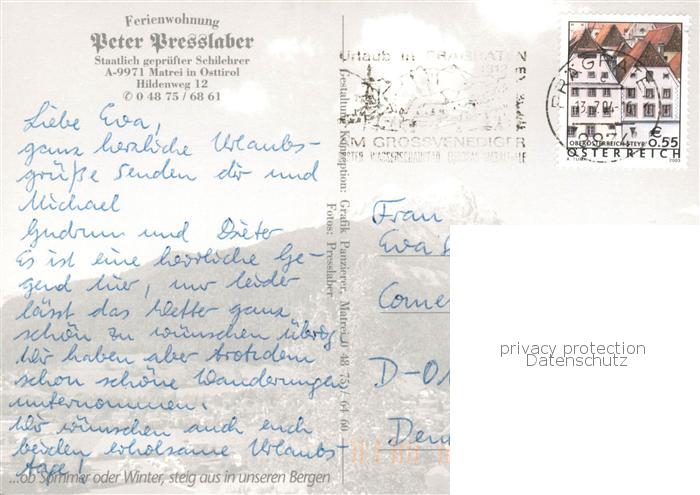 Ferienwohnung
Peter Presslaber
Staatlich geprüfter Schilehrer
A-9971 Matrei in Osttirol
Hildenweg 12
✆ 0 48 75 / 68 61
Liebe Eva,
ganz herzliche Urlaubs-
grüße senden dir und
Michael
Gudrun und Dieter
Es ist eine herrliche Ge-
gend hier, nur leider
lässt das Wetter ganz
schön zu wünschen übrig.
Wir haben aber trotzdem
schon schöne Wanderungen
unternommen.
Wir wünschen auch euch
beiden erholsame Urlaubs-
tage!
...ob Sommer oder Winter, steig aus in unseren Bergen
Gestaltung, Konzeption: Grafik Panzierer, Matrei, 0 48 75 / 64 60
Fotos: Presslaber
Urlaub in PRAGRATEN
AM GROSSVENEDIGER
13.7.04
€ 0.55
OBERÖSTERREICH-STEYR
ÖSTERREICH
2003
Frau
Eva
D-01
privacy protection
Datenschutz